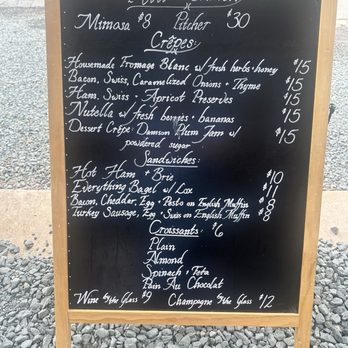 Mimosa $8 Pitcher $30
Crêpes:
Housemade Fromage Blanc w/ fresh herbs + honey $15
Bacon, Swiss, Caramelized Onions + Thyme $15
Ham, Swiss + Apricot Preserves $15
Nutella w/ fresh berries + bananas $15
Dessert Crêpe: Damson Plum Jam w/ $15
powdered sugar
Sandwiches:
Hot Ham + Brie $10
Everything Bagel w/ Lox $11
Bacon, Cheddar, Egg + Pesto on English Muffin $8
Turkey Sausage, Egg + Swiss on English Muffin $8
Croissants: $6
Plain
Almond
Spinach + Feta
Pain Au Chocolat
Wine by the Glass $9 Champagne by the Glass $12